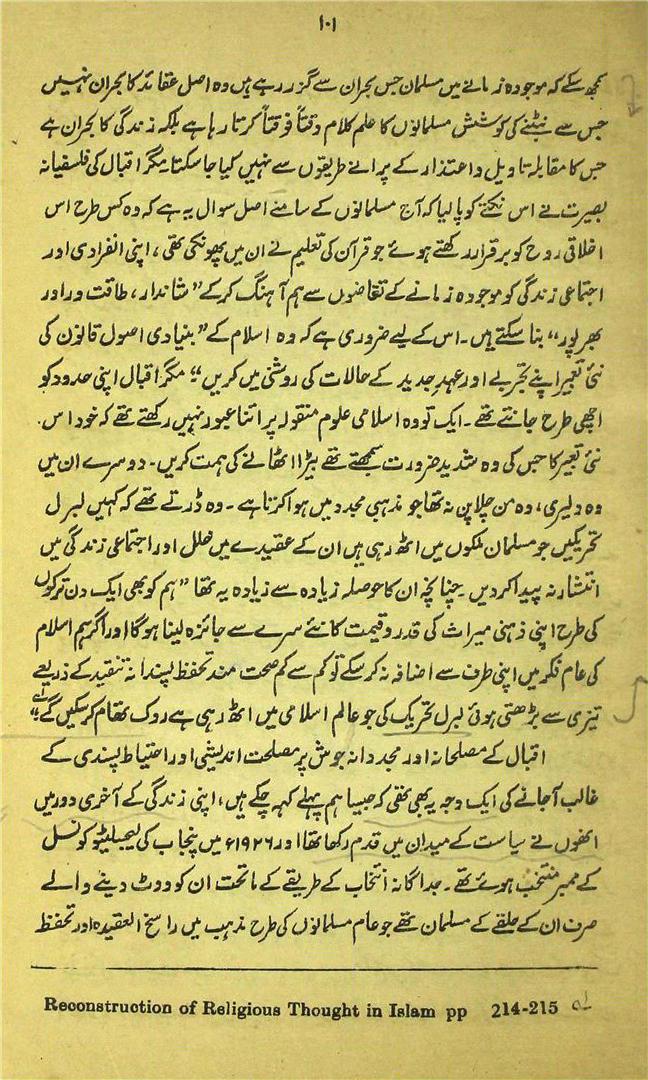 ۱۰۱
سمجھ سکے کہ موجودہ زمانے میں مسلمان جس بحران سے گزر رہے ہیں وہ اصل عقائد کا بحران نہیں
جس سے نبٹنے کی کوشش مسلمانوں کا علم کلام وقتاً فوقتاً کرتا رہا ہے بلکہ زندگی کا بحران ہے
جس کا مقابلہ تاویل واعتذار کے پرانے طریقوں سے نہیں کیا جا سکتا مگر اقبال کی فلسفیانہ
بصیرت نے اس نکتے کو پا لیا کہ آج مسلمانوں کے سامنے اصل سوال یہ ہے کہ وہ کس طرح اس
اخلاقی روح کو برقرار رکھتے ہوئے جو قرآن کی تعلیم نے ان میں پھونکی تھی، اپنی انفرادی اور
اجتماعی زندگی کو موجودہ زمانے کے تقاضوں سے ہم آہنگ کرکے "شاندار، طاقت ور اور
بھرپور" بنا سکتے ہیں۔ اس کے لیے ضروری ہے کہ وہ اسلام کے "بنیادی اصول قانون کی
نئی تعبیر اپنے تجربے اور عہدِ جدید کے حالات کی روشنی میں کریں"؛ مگر اقبال اپنی حدود کو
اچھی طرح جانتے تھے۔ ایک تو وہ اسلامی علوم منقولہ پر اتنا عبور نہیں رکھتے تھے کہ خود اس
نئی تعبیر کا جس کی وہ شدید ضرورت سمجھتے تھے بیڑا اٹھانے کی ہمت کریں۔ دوسرے ان میں
وہ دلیری، وہ من چلا پن نہ تھا جو مذہبی مجدد میں ہوا کرتا ہے۔ وہ ڈرتے تھے کہ کہیں لبرل
تحریکیں جو مسلمان ملکوں میں اٹھ رہی ہیں ان کے عقیدے میں خلل اور اجتماعی زندگی میں
انتشار نہ پیدا کر دیں۔ چنانچہ ان کا حوصلہ زیادہ سے زیادہ یہ تھا "ہم کو بھی ایک دن ترکوں
کی طرح اپنی ذہنی میراث کی قدر و قیمت کا نئے سرے سے جائزہ لینا ہوگا اور اگر ہم اسلام
کی عام فکر میں اپنی طرف سے اضافہ نہ کر سکے تو کم سے کم صحت مند تحفظ پسندانہ تنقید کے ذریعے
تیزی سے بڑھتی ہوئی لبرل تحریک کی جو عالم اسلامی میں اٹھ رہی ہے روک تھام کر سکیں گے"؂۱
اقبال کے مصلحانہ اور مجددانہ جوش پر مصلحت اندیشی اور احتیاط پسندی کے
غالب آجانے کی ایک وجہ یہ بھی تھی کہ جیسا ہم پہلے کہہ چکے ہیں، اپنی زندگی کے آخری دور میں
انھوں نے سیاست کے میدان میں قدم رکھا تھا اور ۱۹۲۶ء میں پنجاب کی لیجسلیٹو کونسل
کے ممبر منتخب ہوئے تھے۔ جداگانہ انتخاب کے طریقے کے ماتحت ان کو ووٹ دینے والے
صرف ان کے حلقے کے مسلمان تھے جو عام مسلمانوں کی طرح مذہب میں راسخ العقیدہ اور تحفظ
Reconstruction of Religious Thought in Islam pp 214-215 ؂۱